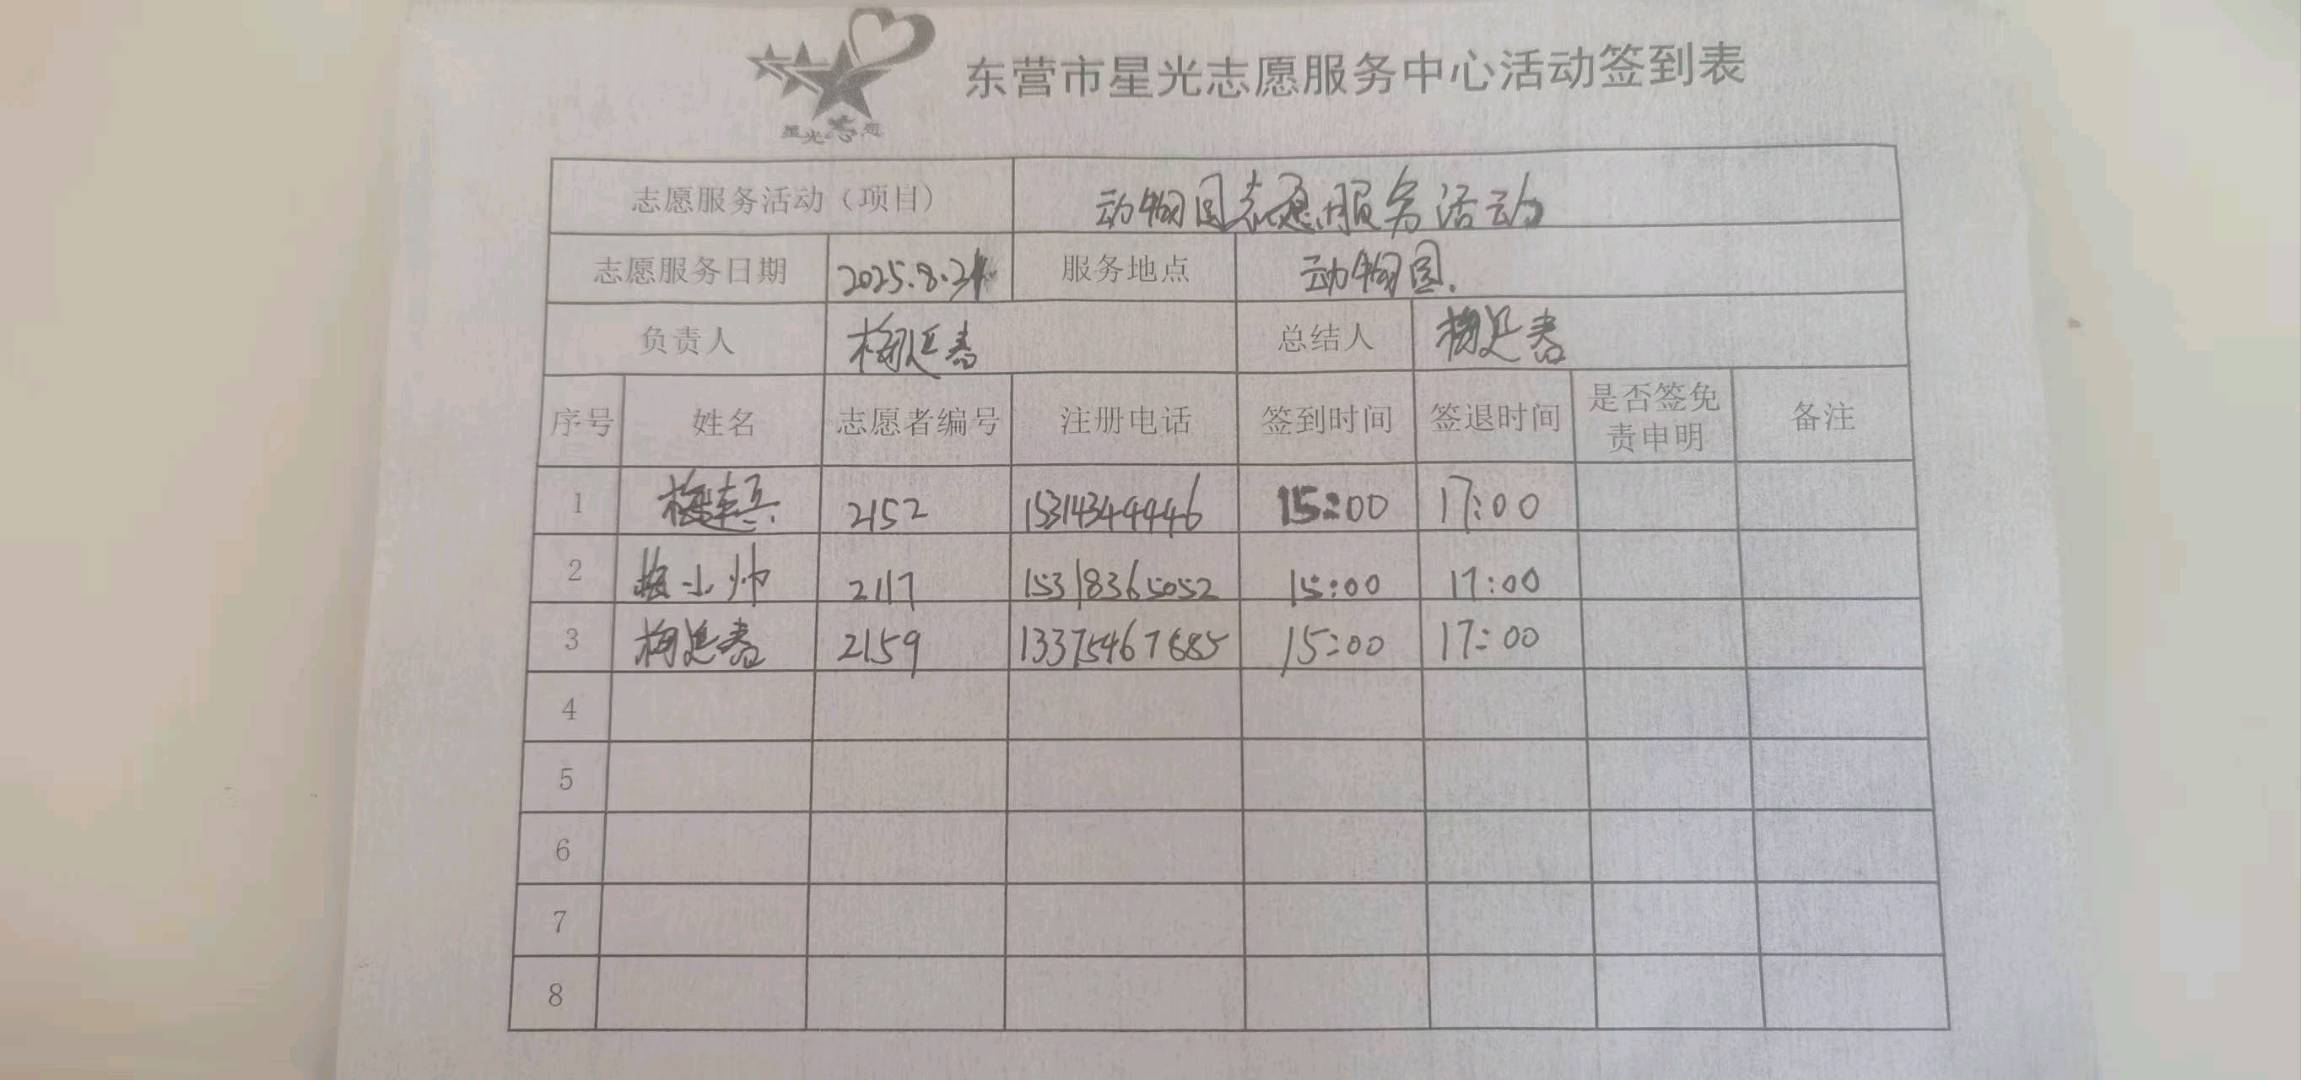 星光志愿
东营市星光志愿服务中心活动签到表
志愿服务活动（项目） 动物园志愿服务活动
志愿服务日期 2025.8.31 服务地点 动物园.
负责人 梅延春 总结人 梅延春
序号 姓名 志愿者编号 注册电话 签到时间 签退时间 是否签免责申明 备注
1 2152 15314344446 15:00 17:00
2 梅小帅 2117 15318365052 15:00 17:00
3 梅延春 2159 15:00 17:00
4
5
6
7
8